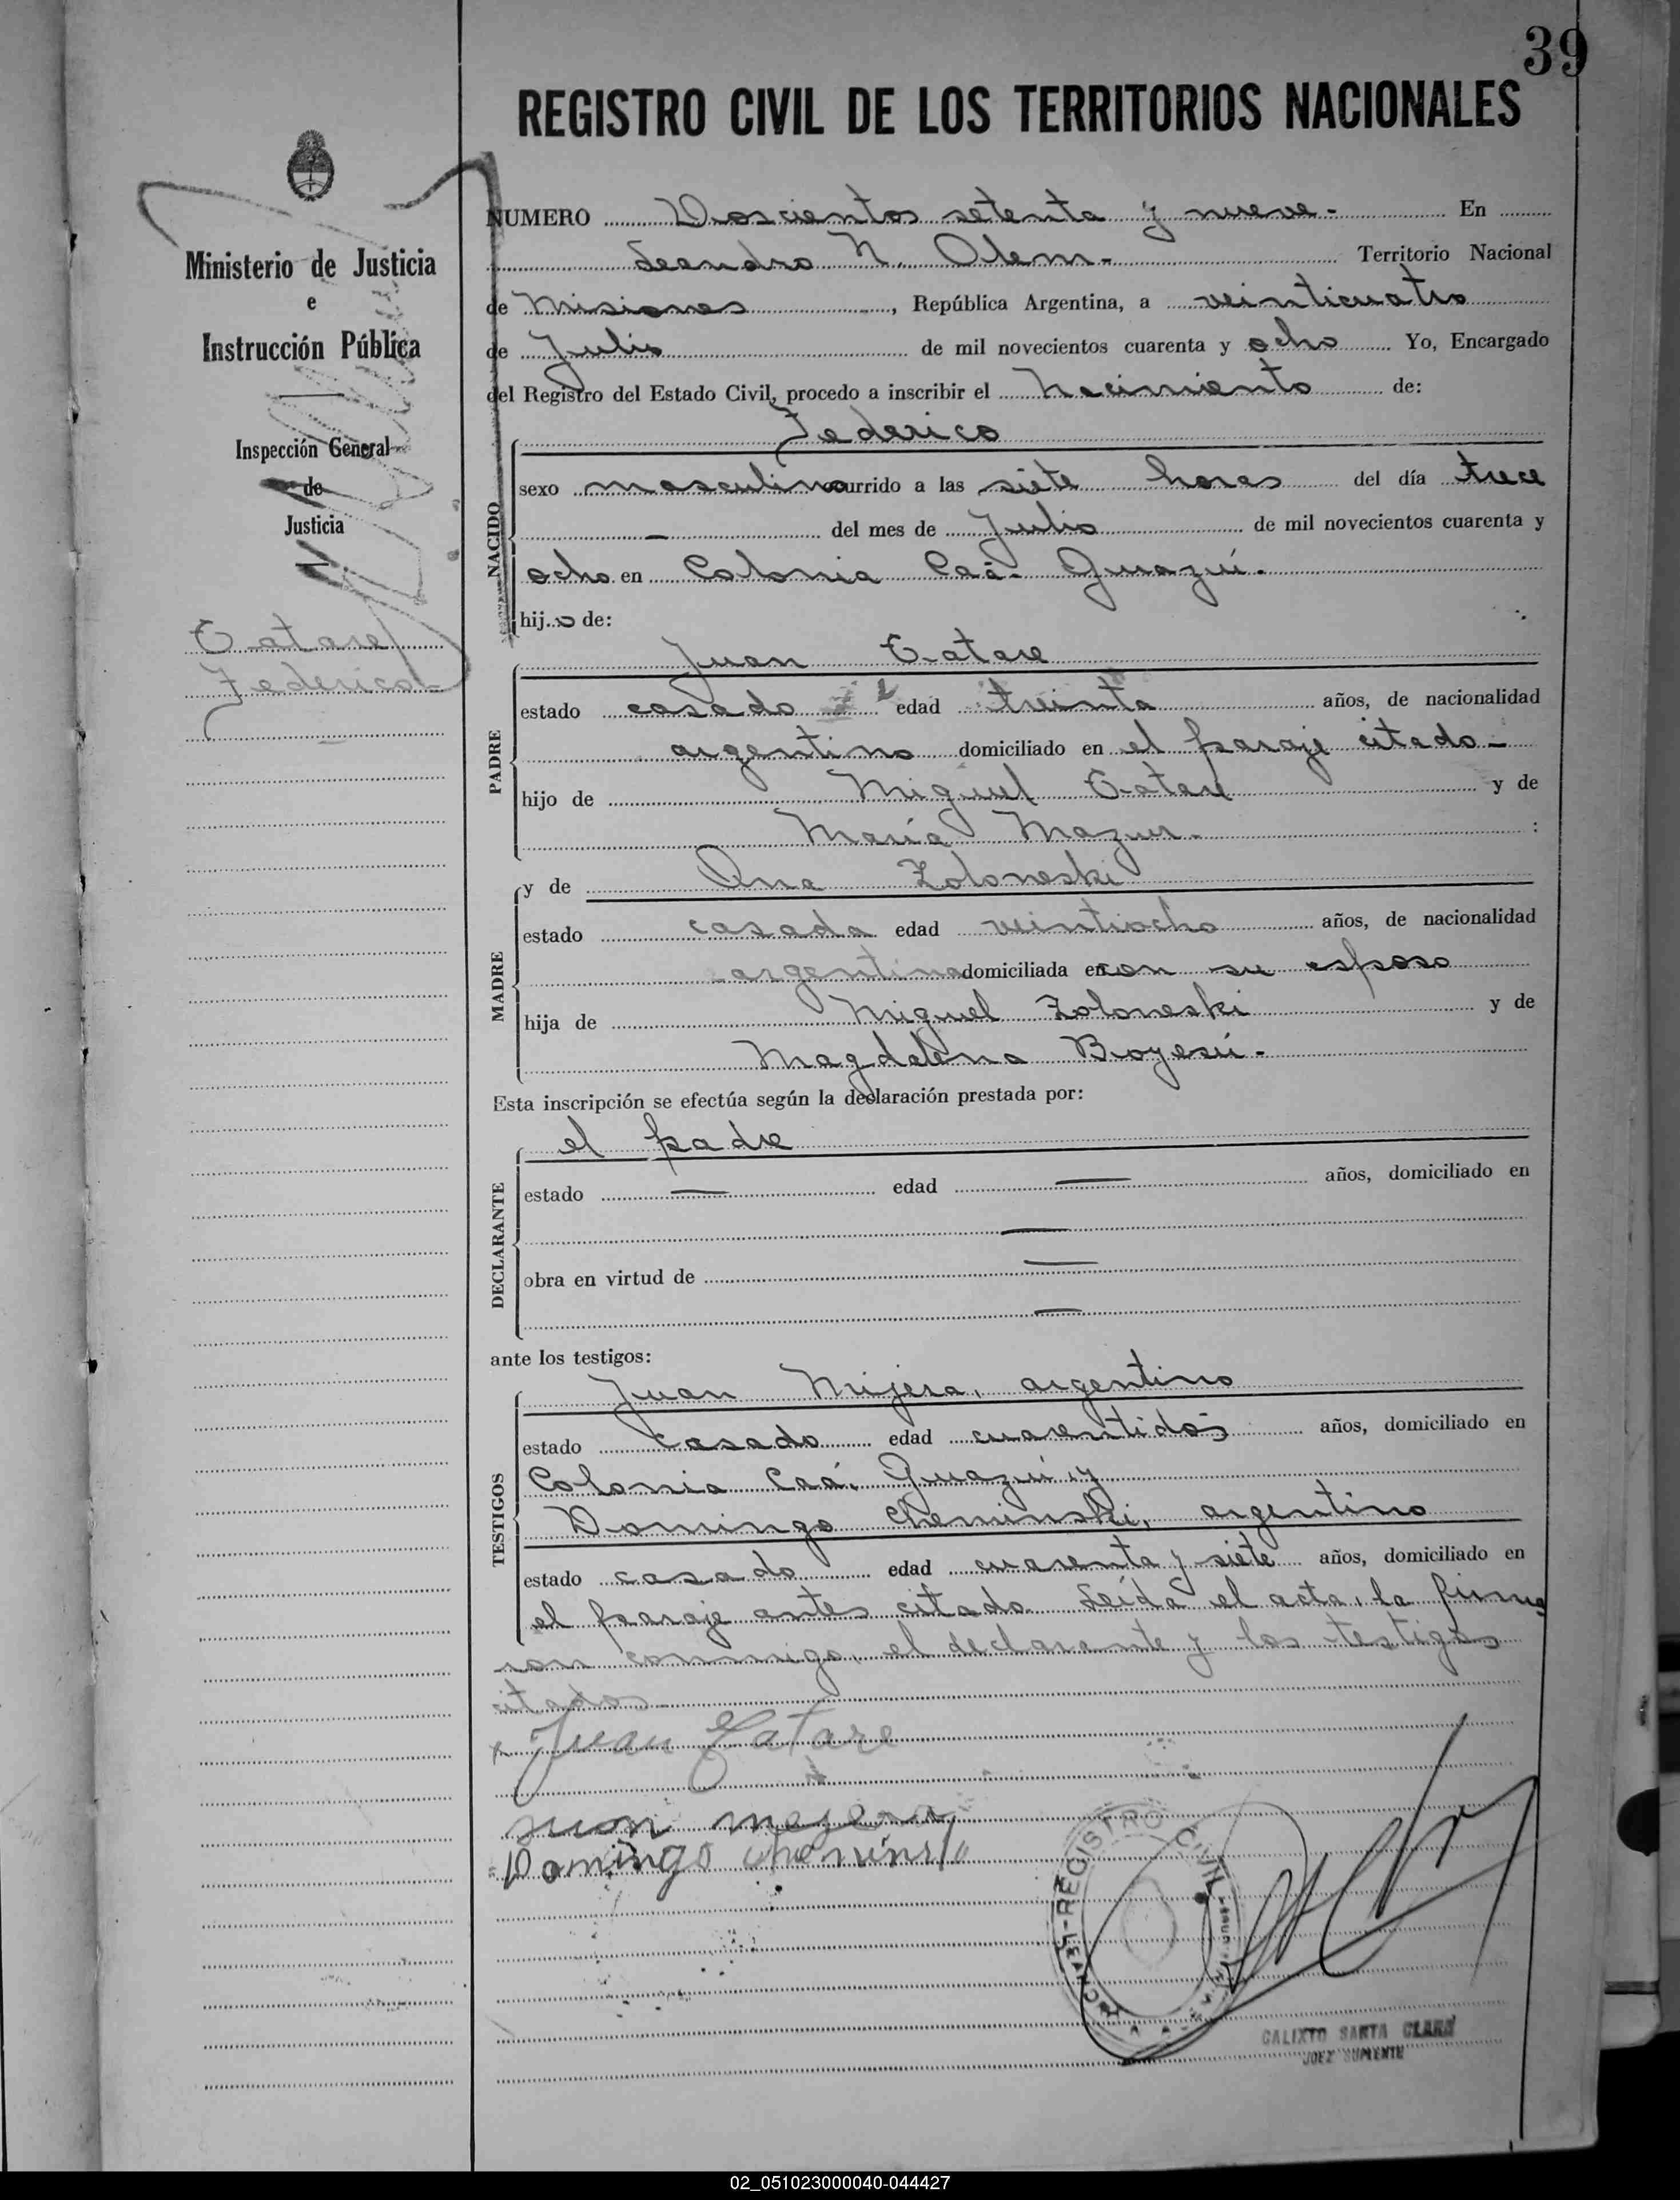 39
REGISTRO CIVIL DE LOS TERRITORIOS NACIONALES
Ministerio de Justicia
e
Instrucción Pública
Inspección General
de
Justicia
Tatare
Federico
NUMERO Doscientos setenta y nueve.- En
Leandro N. Alem.- Territorio Nacional
de Misiones, República Argentina, a veinticuatro
de Julio de mil novecientos cuarenta y ocho Yo, Encargado
del Registro del Estado Civil, procedo a inscribir el nacimiento de:
NACIDO
Federico
sexo masculino ocurrido a las siete horas del día trece
— del mes de Julio de mil novecientos cuarenta y
ocho en Colonia Caá-Guazú.
hijo de:
PADRE
Juan Tatare
estado casado edad treinta años, de nacionalidad
argentino domiciliado en el paraje citado-
hijo de Miguel Tatare y de
María Mazur-
MADRE
y de Ana Zoloneski
estado casada edad veintiocho años, de nacionalidad
argentina domiciliada en con su esposo
hija de Miguel Zoloneski y de
Magdalena
Esta inscripción se efectúa según la declaración prestada por:
DECLARANTE
el padre
estado — edad — años, domiciliado en
—
obra en virtud de —
—
ante los testigos:
TESTIGOS
Juan Mijera, argentino
estado casado edad cuarentidos años, domiciliado en
Colonia Caá-Guazú y
Domingo Cheminski, argentino
estado casado edad cuarenta y siete años, domiciliado en
el paraje antes citado. Leída el acta, la firma
ron conmigo, el declarante y los testigos
citados.
Juan Tatare
Juan mejera
Domingo
REGISTRO CIVIL
CALIXTO SANTA CLARA
JUEZ SUPLENTE
02_051023000040-044427